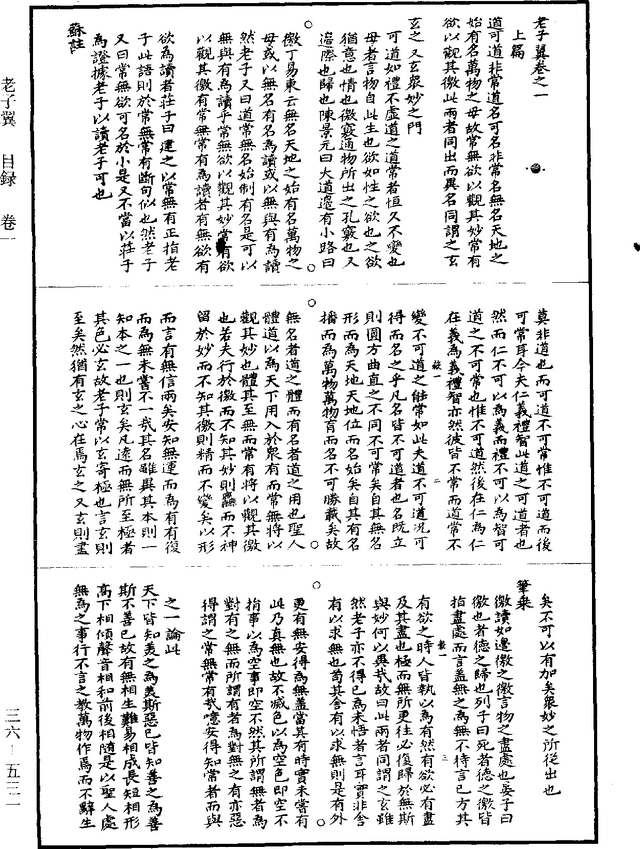 老子翼卷之一
上篇
道可道非常道名可名非常名無名天地之
始有名萬物之母故常無欲以觀其妙常有
欲以觀其徼此兩者同出而異名同謂之玄
玄之又玄眾妙之門
可道如禮不虛道之道常者恒久不變也
母者言物自此生也欲如性之欲也之欲
猶意也情也徼竅通物所出之孔竅也又
邊際也歸也陳景元曰大道邊有小路曰
徼丁易東云無名天地之始有名萬物之
母或以無名有名為讀或以無與有為讀
然老子又曰道常無名始制有名是可以
無與有為讀乎常無欲以觀其妙常有欲
以觀其徼有常無常有為讀者有無欲有
欲為讀者莊子曰建之以常無有正指老
子此語則於常無常有斷句似也然老子
又曰常無欲可名於小是又不當以莊子
為證據老子以讀老子可也
蘇註
莫非道也而可道不可常惟不可道而後
可常耳今夫仁義禮智此道之可道者也
然而仁不可以為義而禮不可以為智可
道之不可常也惟不可道然後在仁為仁
在義為義禮智亦然彼皆不常而道常不
變不可道之能常如此夫道不可道況可
得而名之乎凡名皆不可道者也名既立
則圓方曲直之不同不可常矣自其無名
形而為天地天地位而名始矣自其有名
播而為萬物萬物育而名不可勝載矣故
無名者道之體而有名者道之用也聖人
體道以為天下用入於眾有而常無將以
觀其妙也體其至無而常有將以觀其徼
也若夫行於徼而不知其妙則麤而不神
留於妙而不知其徼則精而不變矣以形
而言有無信兩矣安知無運而為有有復
而為無未嘗不一哉其名雖異其本則一
知本之一也則玄矣凡遠而無所至極者
其色必玄故老子常以玄寄極也言玄則
至矣然猶有玄之心在焉玄之又玄則盡
矣不可以有加矣眾妙之所從出也
筆乘
徼讀如邊徼之徼言物之盡處也晏子曰
徼也者德之歸也列子曰死者德之徼皆
指盡處而言蓋無之為無不待言已方其
有欲之時人皆執以為有然有欲必有盡
及其盡也極而無所更往必復歸於無斯
與妙何以異哉故曰此兩者同謂之玄雖
然老子亦不得已為未悟者言耳實非舍
有以求無也苟其舍有以求無則是有外
更有無安得為無蓋當其有時實未嘗有
此乃真無也故不滅色以為空色即空不
捐事以為空事即空不然其所謂無者為
對有之無而所謂有者為對無之有亦惡
得謂之常無常有哉噫安得知常者而與
之一論此
天下皆知美之為美斯惡已皆知善之為善
斯不善已故有無相生難易相成長短相形
高下相傾聲音相和前後相隨是以聖人處
無為之事行不言之教萬物作焉而不辭生
老子翼 目録 卷一
三六—五三一